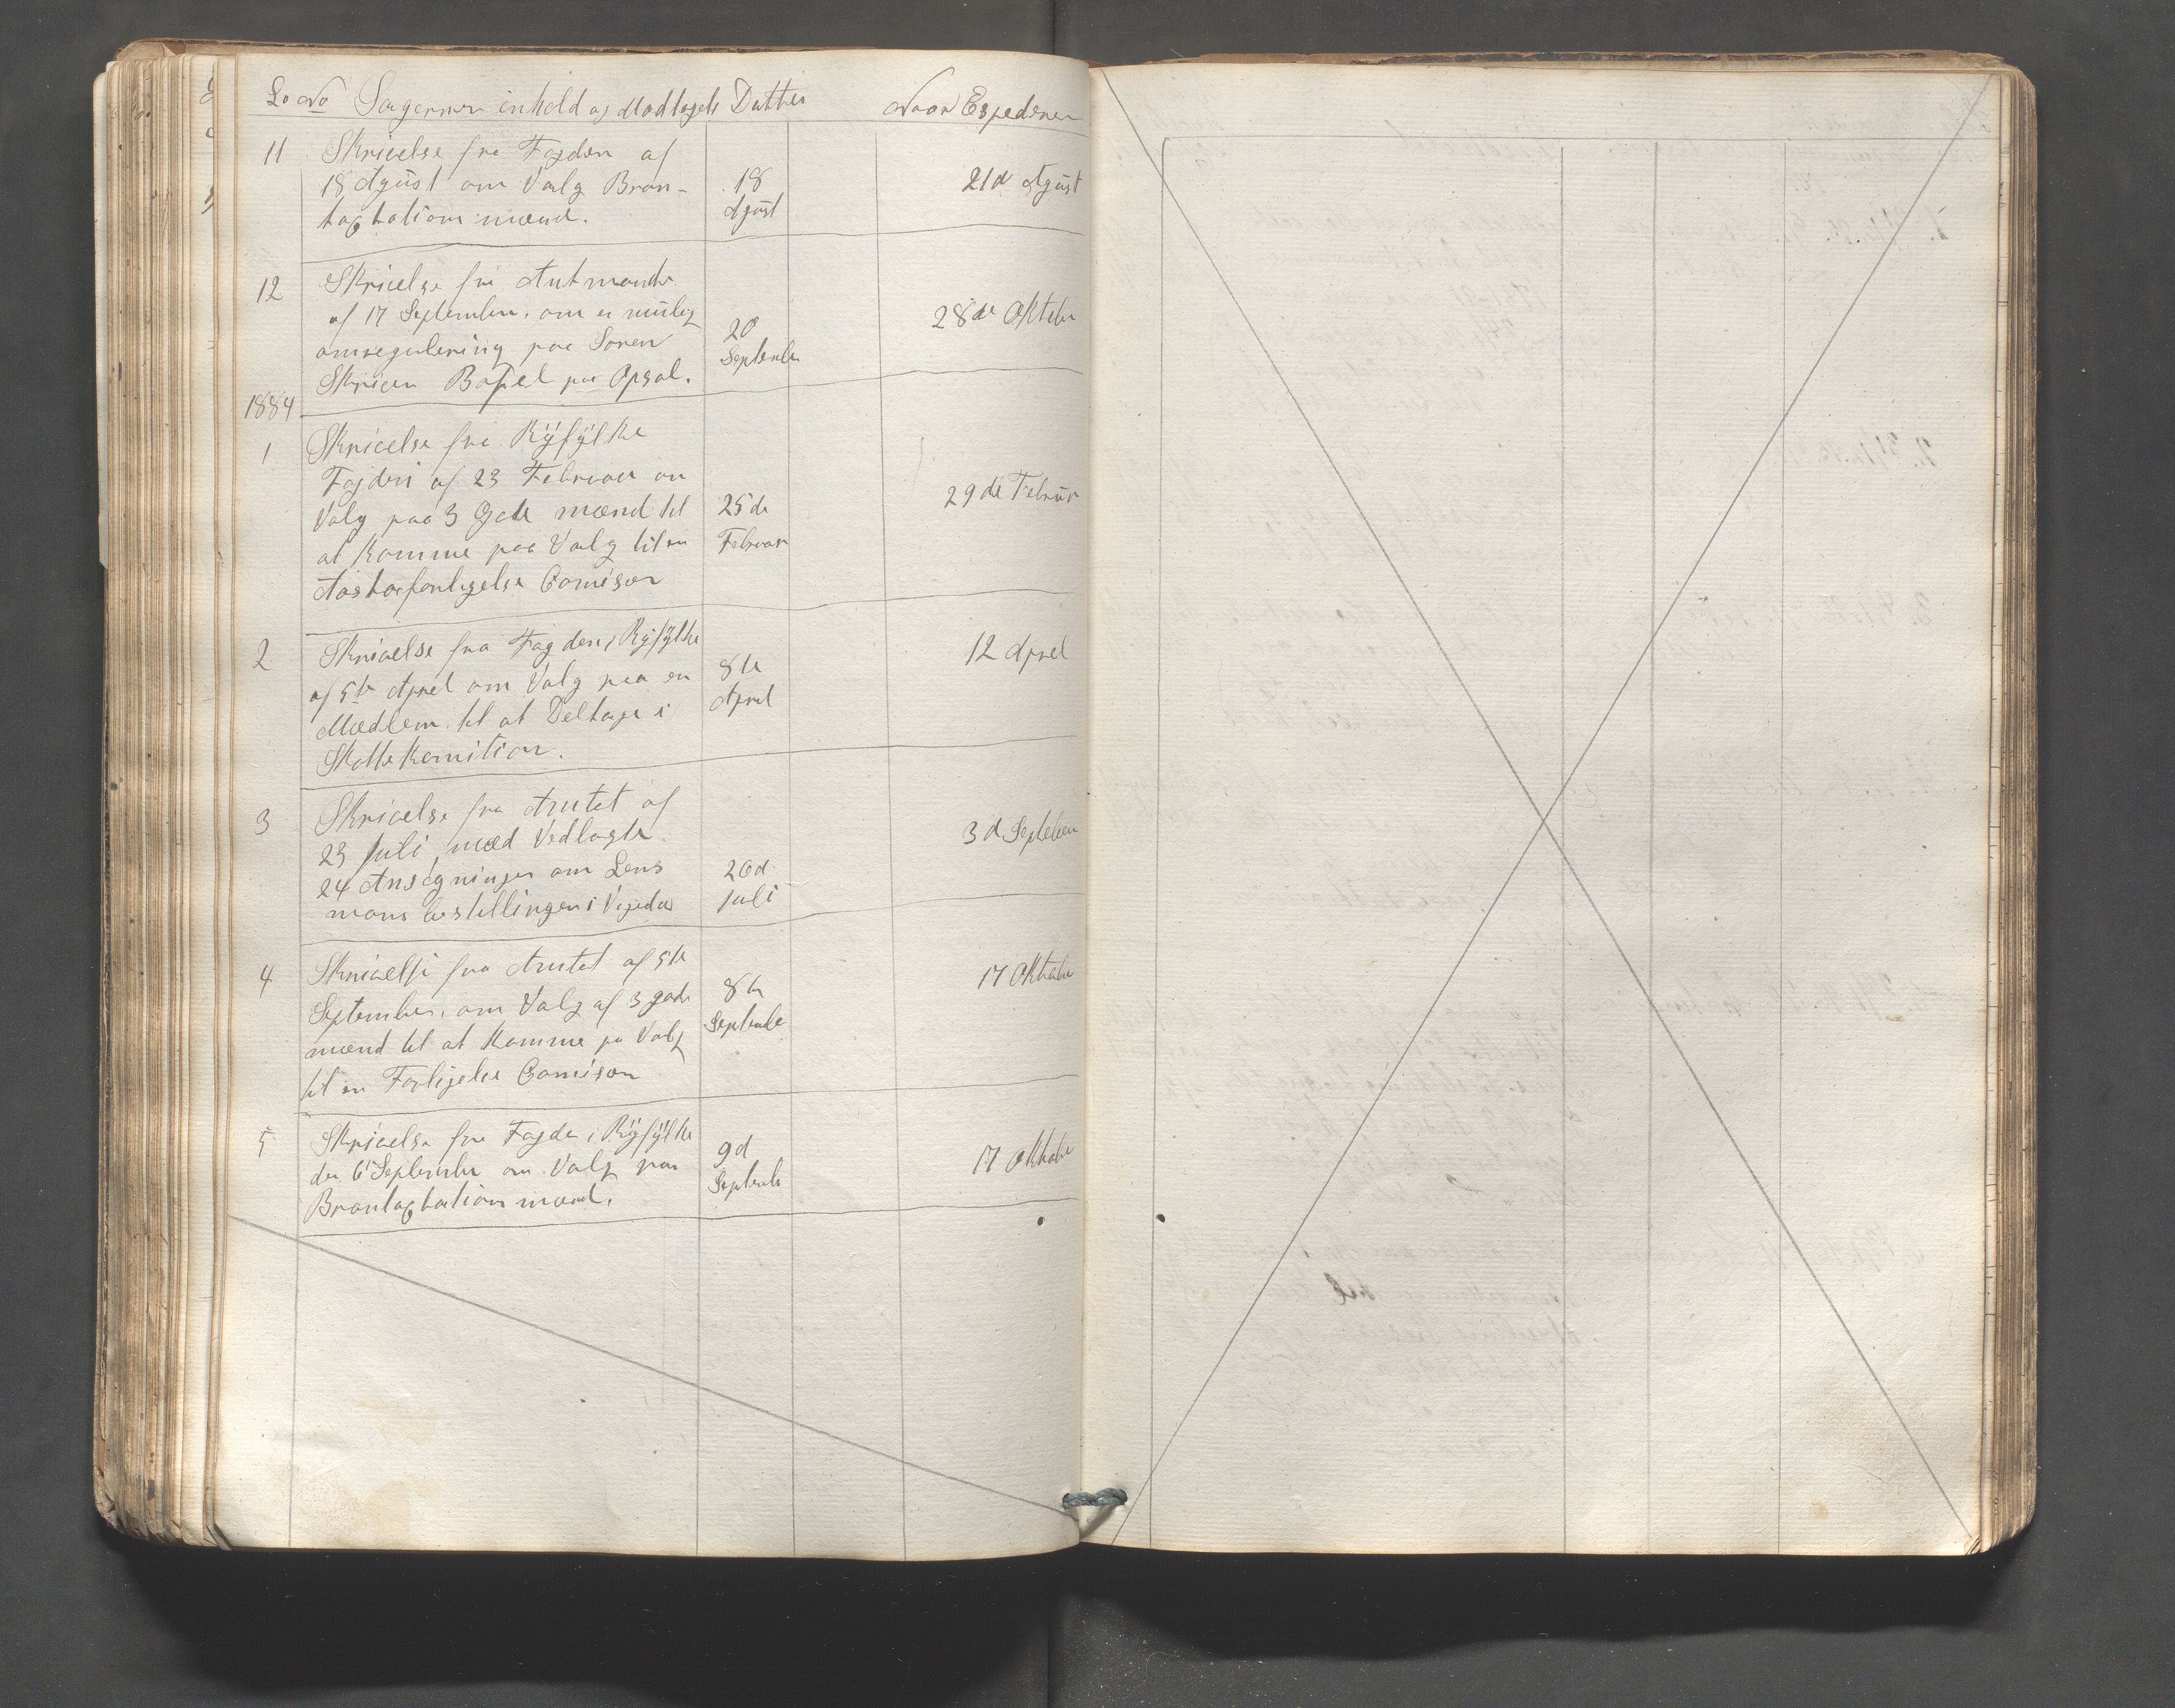 Lo No Sagernes inhold og Modtagels Datter Naar Expederer
11 Skrivelse fra Fogden af
18 August om Valg Bran-
taxtations mænd.
18 August
21d August
12 Skrivelse fra Amtmande
af 17 September, om en mulig
omregulering paa Søren
Skrien Bøxel paa Opsal.
20 September
28de Oktober
1884
1 Skrivelse fra Ryfylke
Fogderi af 23 Februar om
Valg paa 3 Gode mænd til
at Komme paa Valg til en
forligelse Comison
25de Februar
29de Februr
2 Skrivelse fra Fogden i Ryfylke
af 5te April om Valg paa en
Medlem til at Deltage i
Skatte Komition.
8te April
12 April
3 Skrivelse fra Amtet af
23 Juli, med Vedlagte
24 Ansøgninger om Lens
mans bestillingen i Vigedal
26d Juli
3d September
4 Skrivelse fra Amtet af 5te
September, om Valg af 3 gode
mænd til at Komme på Valg
til en Forligelse Comison
8te September
17 Oktober
5 Skrivelse fra Fogde i Ryfylke
den 6 September om Valg paa
Brantaxtations mænd.
9d September
17 Oktober